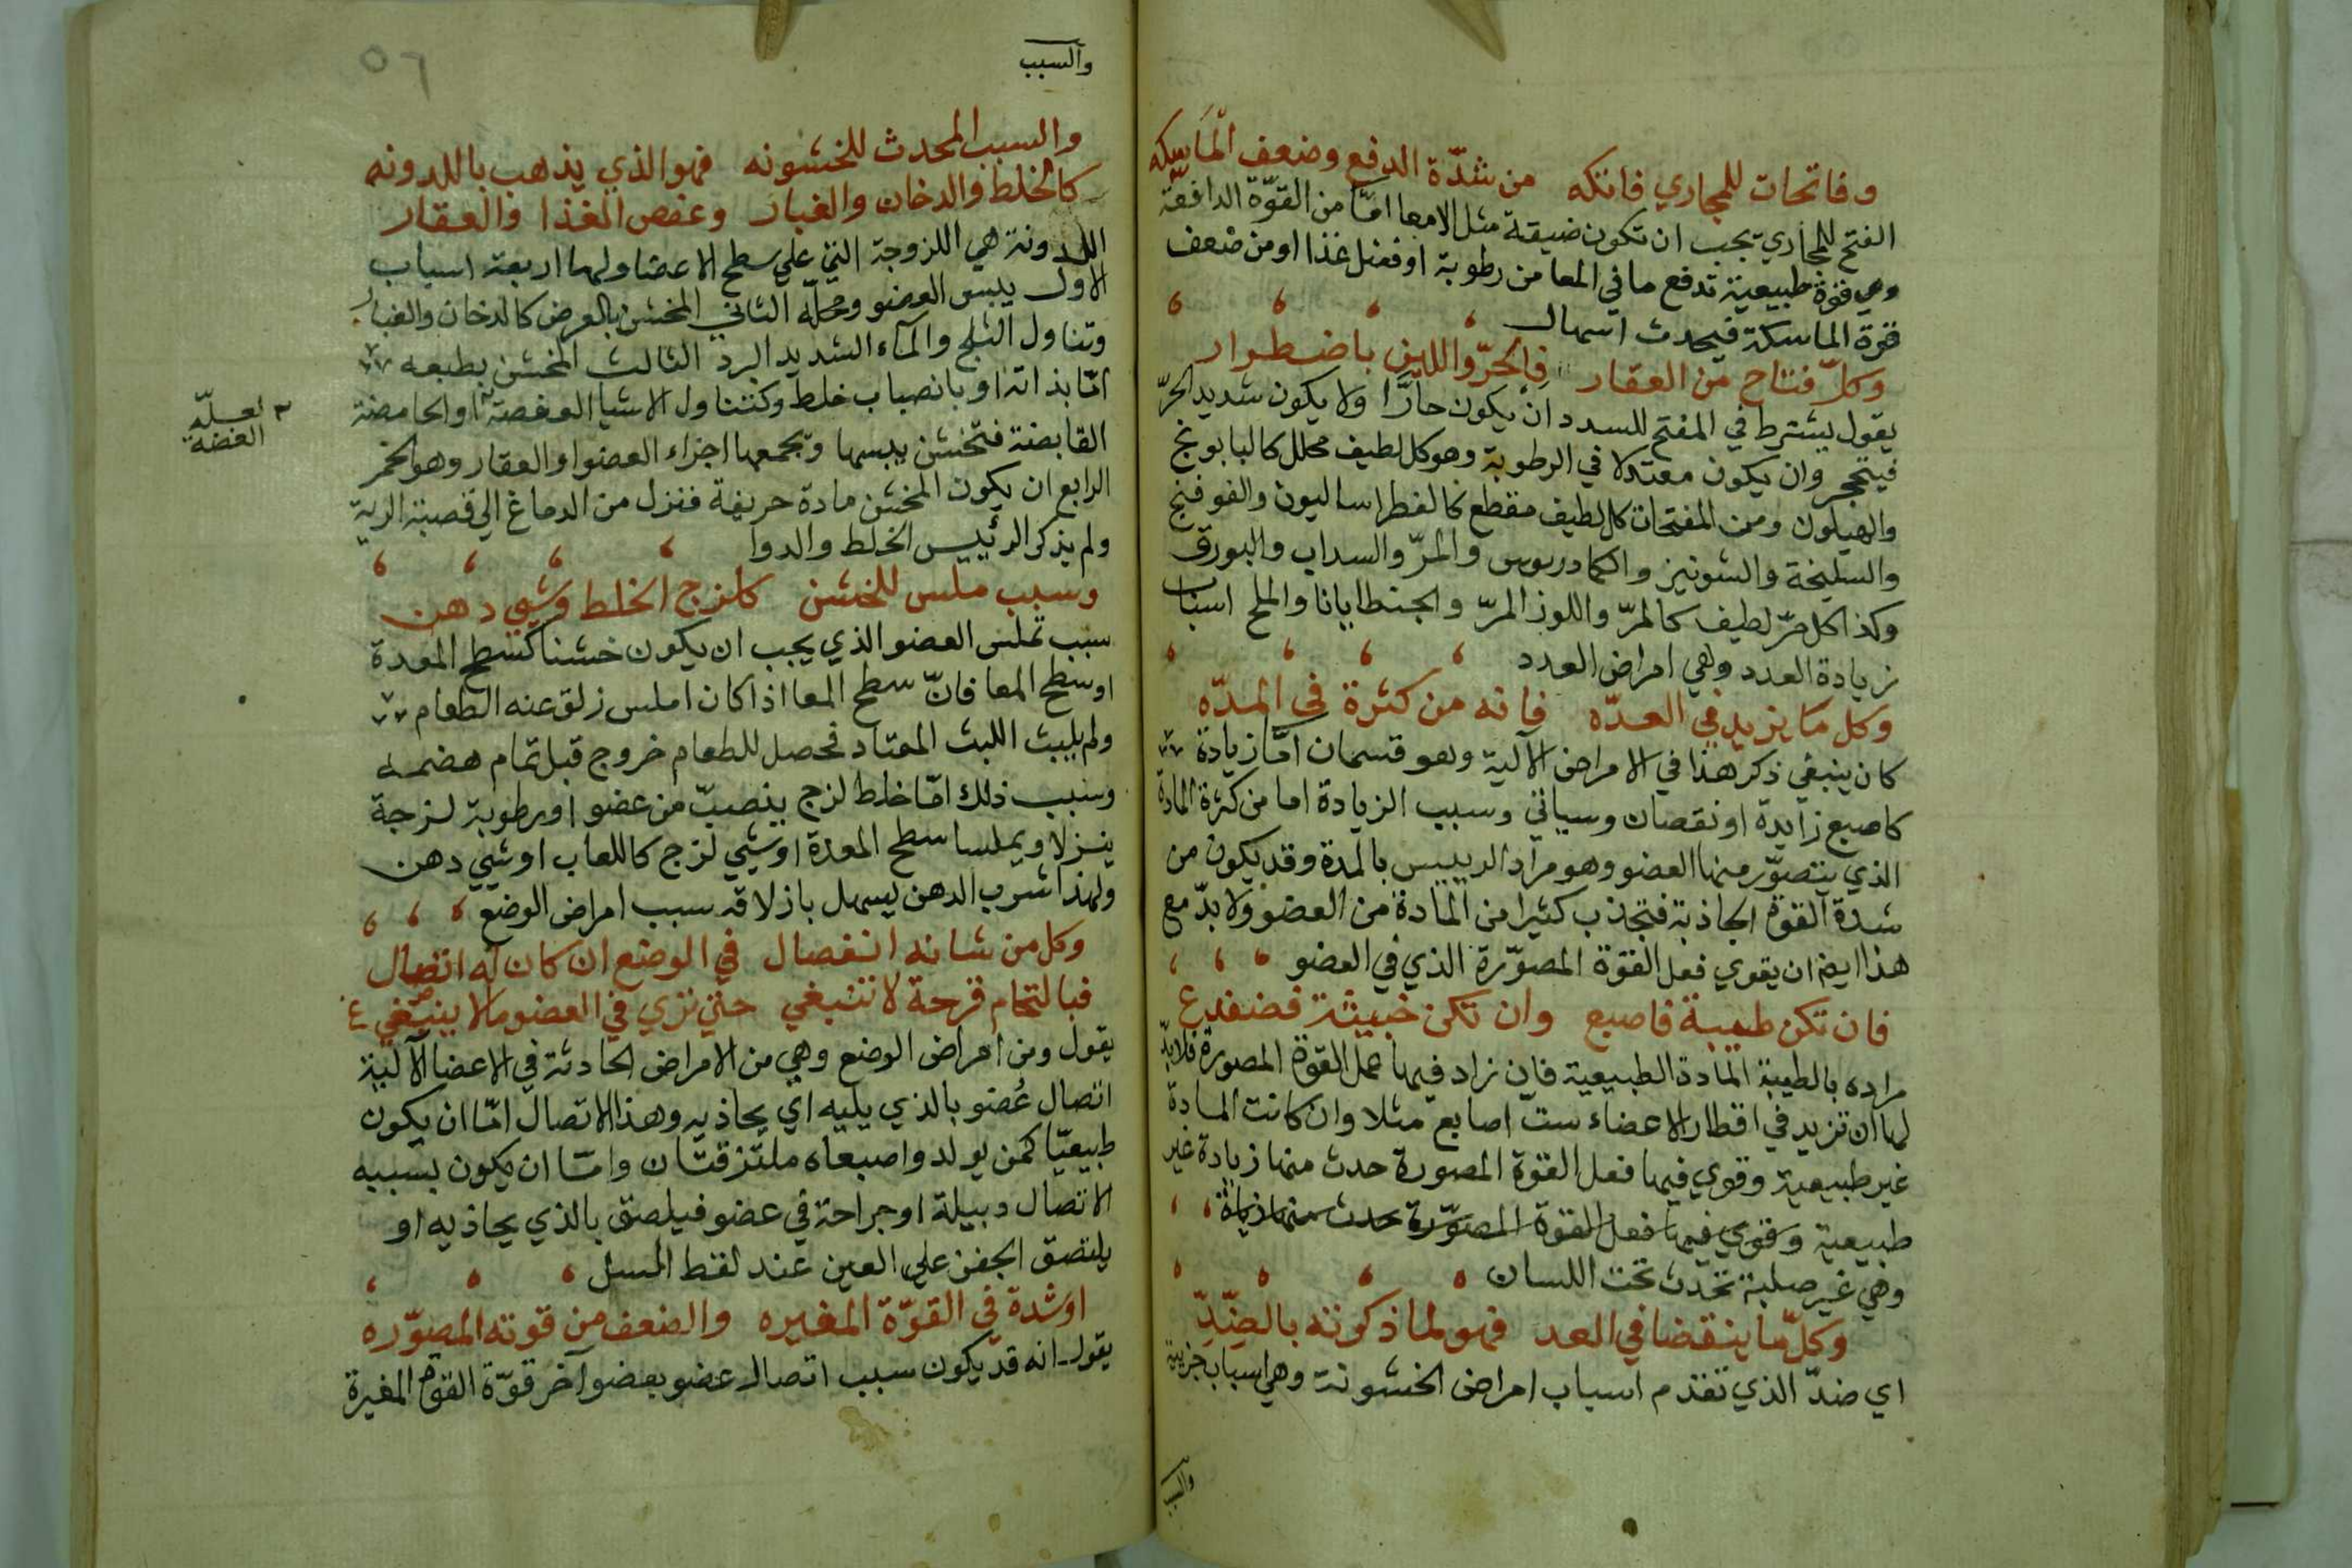 وفاتحات للمجاري فاتكه من شدّة الدفع وضعف الماسكه
الفتح للمجاري يجب ان تكون ضيقة مثل الامعا امّا من القوّة الدافعة
وهي قوة طبيعية تدفع ما في المعا من رطوبة او فضل غذا او من ضعف
قوة الماسكة فيحدث اسهال
وكلّ فتاح من العقار فالحرّ واللين باضطرار
يقول يشترط في المفتح للسدد ان يكون حارّا ولا يكون شديد الحرّ
فيتحجر وان يكون معتدلا في الرطوبة وهو كل لطيف محلل كالبابونج
والهيلون ومن المفتحات كل لطيف مقطع كالفطراساليون والفوفنج
والسليخة والشونيز والكمادريوس والمرّ والسداب والبورق
وكذا كل مرّ لطيف كالمرّ واللوز المرّ والجنطايانا والملح اسباب
زيادة العدد وهي امراض العدد
وكل ما يزيد في العدّه فانه من كثرة في المدّه
كان ينبغي ذكر هذا في الامراض الآلية وهو قسمان امّا زيادة
كاصبع زايدة او نقصان وسياتي وسبب الزيادة اما من كثرة المادة
الذي يتصوّر منها العضو وهو مراد الرييس بالمدة وقد يكون من
شدة القوة الجاذبة فتجذب كثيرا من المادة من العضو ولا بدّ مع
هذا ايضا ان يقوي فعل القوّة المصوّرة الذي في العضو
فان تكن طيبة فاصبع وان تكن خبيثة فضفدع
مراده بالطيبة المادة الطبيعية فان زاد فيها عمل القوة المصورة فلا بدّ
لها ان تزيد في اقطار الاعضاء ستّ اصابع مثلا وان كانت المادة
غير طبيعية وقوي فيها فعل القوة المصورة حدث منها زيادة غير
طبيعية وقوي فيها فعل القوة المصوّرة حدث منها زيادة
وهي غير صلبة تحدث تحت اللسان
وكلّ ما ينقضا في العد فهو لما ذكرته بالضّدِّ
اي ضدّ الذي تقدم اسباب امراض الخشونة وهي اسباب جزيية
والسبب
٥٦
والسبب المحدث للخشونه فهو الذي يذهب باللدونه
كالخلط والدخان والغبار وعفص الغذا والعقار
اللدونة هي اللزوجة التي علي سطح الاعضا ولها اربعة اسباب
الاول يبس العضو ومحله الثاني المخشن بالعرض كالدخان والغبار
وتناول الثلج والمآء الشديد البرد الثالث المخشن بطبعه
امّا بذاته او بانصباب خلط وكتناول الاشيا العفصة او الحامضة
القابضة فتخشن بيبسها وتجمعها اجزاء العضو او العقار وهو الخمر
الرابع ان يكون المخشن مادة حريفة فنزل من الدماغ الي قصبة الرية
ولم يذكر الرئيس الخلط والدوا
لعلّه
العفصة
وسبب ملس للخشن كلزج الخلط وشيي دهن
سبب تملس العضو الذي يجب ان يكون خشنا كسطح المعدة
او سطح المعا فانّ سطح المعا اذا كان املس زلق عنه الطعام
ولم يلبث اللبث المعتاد فحصل للطعام خروج قبل تمام هضمه
وسبب ذلك امّا خلط لزج ينصبّ من عضو او رطوبة لزجة
ينزلا ويملسا سطح المعدة او شيي لزج كاللعاب او شيي دهن
ولهذا شرب الدهن يسهل بازلاقه سبب امراض الوضع
وكل من شانه انفصال في الوضع ان كان له اتصال
فبالتحام قرحة لا تنبغي حتي تري في العضو ما لا ينبغي
يقول ومن امراض الوضع وهي من الامراض الحادثة في الاعضا الآلية
اتصال عُضو بالذي يليه اي يحاذيه وهذا الاتصال امّا ان يكون
طبيعيّا كمن يولد واصبعاه ملتزقتان وامّا ان يكون بسببه
الاتصال دبيلة او جراحة في عضو فيلصق بالذي يحاذيه او
يلتصق الجفن علي العين عند لقط السبل
او شدة في القوّة المغيره والضعف من قوته المصوّره
يقول انه قد يكون سبب اتصال عضو بعضو آخر قوّة القوة المغيرة